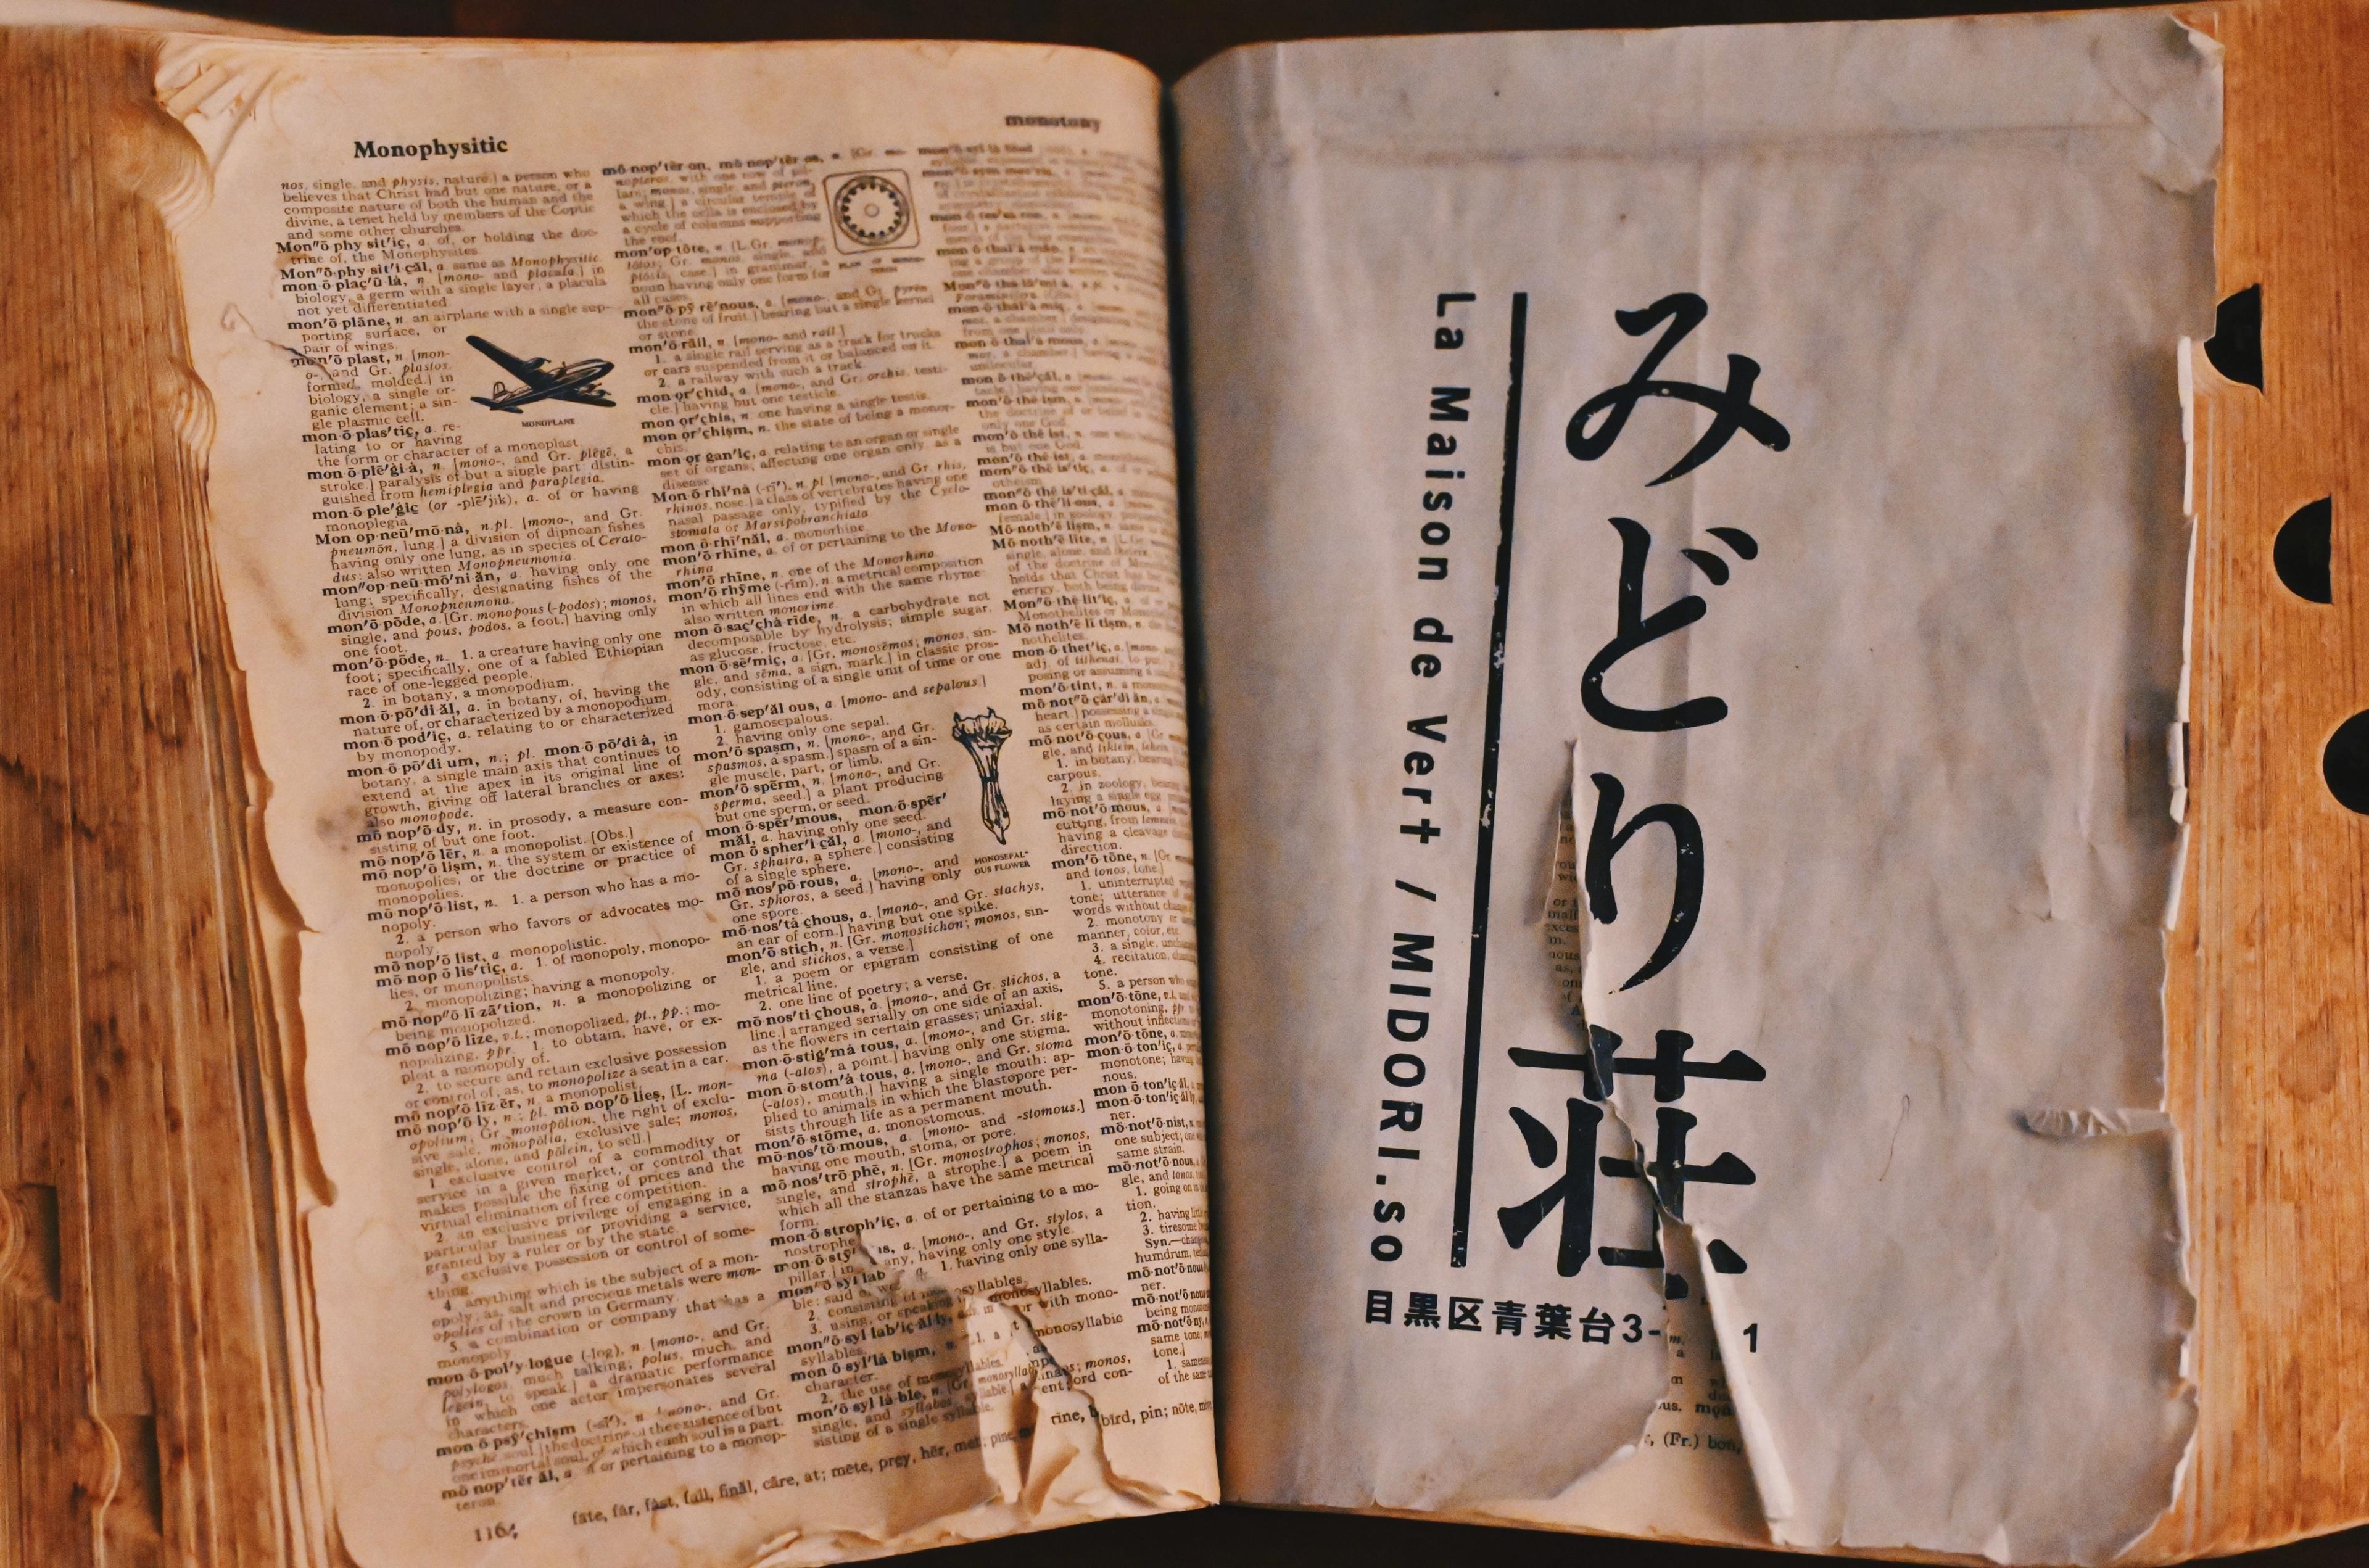 Monophysitic
monotony
nos, single, and physis, nature.] a person who
believes that Christ had but one nature, or a
composite nature of both the human and the
divine, a tenet held by members of the Coptic
and some other churches.
Mon″ō·phy·sit′iç, a. of, or holding the doc-
trine of, the Monophysites.
Mon″ō·phy·sit′i·çăl, a. same as Monophysitic.
mon·ō·plaç′ū·lȧ, n. [mono- and placula.] in
biology, a germ with a single layer, a placula
not yet differentiated.
mon′ō·plāne, n. an airplane with a single sup-
porting surface, or
pair of wings.
mon′ō·plast, n. [mon-
o-, and Gr. plastos,
formed, molded.] in
biology, a single or-
ganic element; a sin-
gle plasmic cell.
MONOPLANE
mon·ō·plas′tiç, a. re-
lating to or having
the form or character of a monoplast.
mon·ō·plē′ġi·ȧ, n. [mono-, and Gr. plēgē, a
stroke.] paralysis of but a single part: distin-
guished from hemiplegia and paraplegia.
mon·ō·ple′ġiç (or -plē′jik), a. of or having
monoplegia.
Mon·op·neū′mō·nȧ, n.pl. [mono-, and Gr.
pneumōn, lung.] a division of dipnoan fishes
having only one lung, as in species of Cerato-
dus: also written Monopneumonia.
mon″op·neū·mō′ni·ăn, a. having only one
lung; specifically, designating fishes of the
division Monopneumona.
mon′ō·pōde, a. [Gr. monopous (-podos); monos,
single, and pous, podos, a foot.] having only
one foot.
mon′ō·pōde, n. 1. a creature having only one
foot; specifically, one of a fabled Ethiopian
race of one-legged people.
2. in botany, a monopodium.
mon·ō·pō′di·ăl, a. in botany, of, having the
nature of, or characterized by a monopodium.
mon·ō·pod′iç, a. relating to or characterized
by monopody.
mon·ō·pō′di·um, n.; pl. mon·ō·pō′di·ȧ, in
botany, a single main axis that continues to
extend at the apex in its original line of
growth, giving off lateral branches or axes:
also monopode.
mō·nop′ō·dy, n. in prosody, a measure con-
sisting of but one foot.
mō·nop′ō·lēr, n. a monopolist. [Obs.]
mō·nop′ō·lism, n. the system or existence of
monopolies, or the doctrine or practice of
monopolies.
mō·nop′ō·list, n. 1. a person who has a mo-
nopoly.
2. a person who favors or advocates mo-
nopoly.
mō·nop′ō·list, a. monopolistic.
mō·nop·ō·lis′tiç, a. 1. of monopoly, monopo-
lies, or monopolists.
2. monopolizing; having a monopoly.
mō·nop″ō·lī·zā′tion, n. a monopolizing or
being monopolized.
mō·nop′ō·līze, v.t.; monopolized, pt., pp.; mo-
nopolizing, ppr. 1. to obtain, have, or ex-
ploit a monopoly of.
2. to secure and retain exclusive possession
or control of; as, to monopolize a seat in a car.
mō·nop′ō·līz·ēr, n. a monopolist.
mō·nop′ō·ly, n.; pl. mō·nop′ō·lies, [L. mon-
opolium; Gr. monopōlion, the right of exclu-
sive sale, monopōlia, exclusive sale; monos,
single, alone, and pōlein, to sell.]
1. exclusive control of a commodity or
service in a given market, or control that
makes possible the fixing of prices and the
virtual elimination of free competition.
2. an exclusive privilege of engaging in a
particular business or providing a service,
granted by a ruler or by the state.
3. exclusive possession or control of some-
thing.
4. anything which is the subject of a mon-
opoly; as, salt and precious metals were mon-
opolies of the crown in Germany.
5. a combination or company that has a
monopoly.
mon·ō·pol′y·logue (-log), n. [mono-, and Gr.
polylogos, much talking; polus, much, and
legein, to speak.] a dramatic performance
in which one actor impersonates several
characters.
mon·ō·psȳ′çhism (-sī′), n. [mono-, and Gr.
psychē, soul.] the doctrine of the existence of but
one immortal soul, of which each soul is a part.
mō·nop′tēr·ăl, a. of or pertaining to a monop-
teron.
mō·nop′tēr·on, mō·nop′tēr·os, n. [Gr. mo-
nopteros, with one row of pil-
lars; monos, single, and pteron,
a wing.] a circular temple of
which the cella is enclosed by
a cycle of columns supporting
the roof.
mon′op·tōte, n. [L.Gr. monop-
tōtos; Gr. monos, single, and
ptōsis, case.] in grammar, a
noun having only one form for
all cases.
mon″ō·pȳ·rē′nous, a. [mono-, and Gr. pyren
the stone of fruit.] bearing but a single kernel
or stone.
mon′ō·rāil, n. [mono- and rail.]
1. a single rail serving as a track for trucks
or cars suspended from it or balanced on it.
2. a railway with such a track.
mon·or′chid, a. [mono-, and Gr. orchis, testi-
cle.] having but one testicle.
mon·or′chis, n. one having a single testis.
mon·or′chism, n. the state of being a monor-
chis.
mon·or·gan′iç, a. relating to an organ or single
set of organs; affecting one organ only, as a
disease.
Mon·ō·rhī′nȧ (-rī′), n.pl. [mono-, and Gr. rhis,
rhinos, nose.] a class of vertebrates having one
nasal passage only, typified by the Cyclo-
stomata or Marsipobranchiata.
mon·ō·rhī′năl, a. monorhine.
mon′ō·rhīne, a. of or pertaining to the Mono-
rhina.
mon′ō·rhīne, n. one of the Monorhina.
mon′ō·rhȳme (-rīm), n. a metrical composition
in which all lines end with the same rhyme:
also written monorime.
mon·ō·saç′çhȧ·rīde, n. a carbohydrate not
decomposable by hydrolysis; simple sugar,
as glucose, fructose, etc.
mon·ō·sē′miç, a. [Gr. monosēmos; monos, sin-
gle, and sēma, a sign, mark.] in classic pros-
ody, consisting of a single unit of time or one
mora.
mon·ō·sep′ăl·ous, a. [mono- and sepalous.]
1. gamosepalous.
2. having only one sepal.
mon′ō·spasm, n. [mono-, and Gr.
spasmos, a spasm.] spasm of a sin-
gle muscle, part, or limb.
mon′ō·spērm, n. [mono-, and Gr.
sperma, seed.] a plant producing
but one sperm, or seed.
mon·ō·spēr′mous, mon·ō·spēr′
măl, a. having only one seed.
mon·ō·spher′i·çăl, a. [mono-, and
Gr. sphaira, a sphere.] consisting
of a single sphere.
MONOSEPAL-
OUS FLOWER
mō·nos′pō·rous, a. [mono-, and
Gr. sphoros, a seed.] having only
one spore.
mō·nos′tȧ·chous, a. [mono-, and Gr. stachys,
an ear of corn.] having but one spike.
mon′ō·stiçh, n. [Gr. monostichon; monos, sin-
gle, and stichos, a verse.]
1. a poem or epigram consisting of one
metrical line.
2. one line of poetry; a verse.
mō·nos′ti·chous, a. [mono-, and Gr. stichos, a
line.] arranged serially on one side of an axis,
as the flowers in certain grasses; uniaxial.
mon·ō·stig′mȧ·tous, a. [mono-, and Gr. stig-
ma (-atos), a point.] having only one stigma.
mon·ō·stom′ȧ·tous, a. [mono-, and Gr. stoma
(-atos), mouth.] having a single mouth: ap-
plied to animals in which the blastopore per-
sists through life as a permanent mouth.
mon′ō·stōme, a. monostomous.
mō·nos′tō·mous, a. [mono- and -stomous.]
having one mouth, stoma, or pore.
mō·nos′trō·phē, n. [Gr. monostrophos; monos,
single, and strophē, a strophe.] a poem in
which all the stanzas have the same metrical
form.
mon·ō·stroph′iç, a. of or pertaining to a mo-
nostrophe.
any, having only one style.
1. having only one sylla-
monosyllables.
mon′ō·tōne, n.
1. uninterrupted
2. monotony
fāte, fär, fȧst, fạll, finăl, cāre, at; mēte, prẹy, hėr, met; pīne,
bird, pin; nōte,
1164
みどり荘
La Maison de Vert / MIDORI.so
目黒区青葉台3- 1
(Fr.) bon,